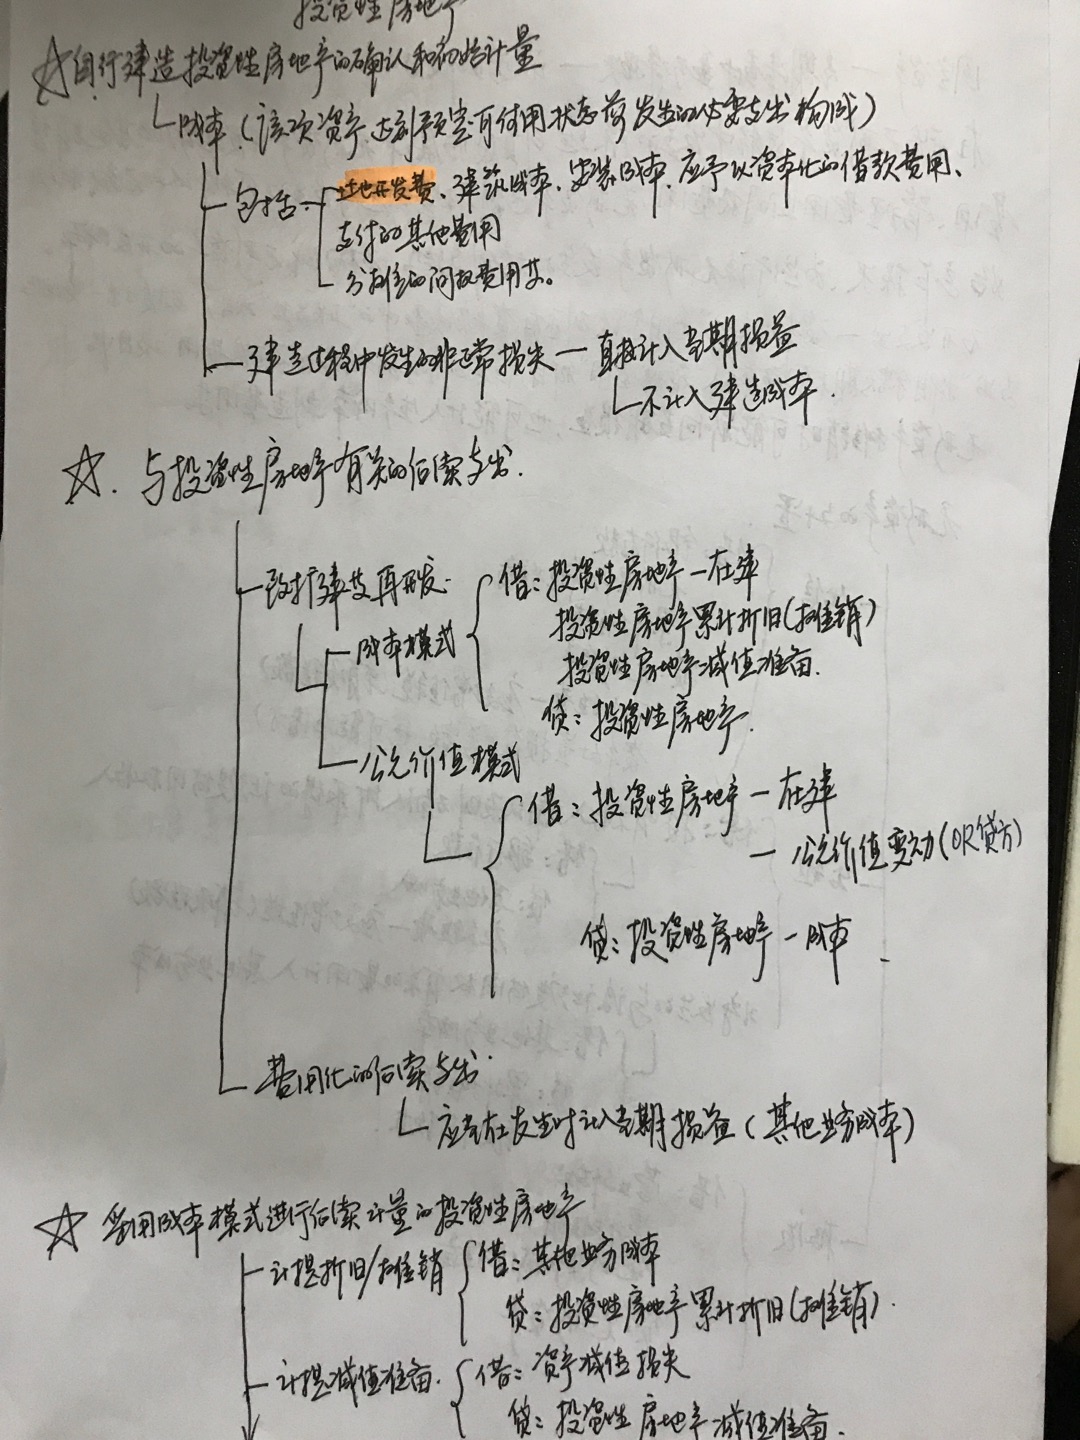 投资性房地产
☆自行建造投资性房地产的确认和初始计量
成本(该项资产达到预定可使用状态前发生的必要支出构成)
包括: 土地开发费、建筑成本、安装成本、应予以资本化的借款费用、
支付的其他费用
分摊的间接费用等。
建造过程中发生的非正常损失—直接计入当期损益
不计入建造成本.
☆. 与投资性房地产有关的后续支出.
改扩建或再开发.
借: 投资性房地产—在建
投资性房地产累计折旧(摊销)
成本模式
投资性房地产减值准备.
贷: 投资性房地产.
公允价值模式
借: 投资性房地产—在建
—公允价值变动(OR贷方)
贷: 投资性房地产—成本
费用化的后续支出.
应当在发生时计入当期损益(其他业务成本)
☆ 采用成本模式进行后续计量的投资性房地产
计提折旧/摊销 借: 其他业务成本
贷: 投资性房地产累计折旧(摊销).
计提减值准备. 借: 资产减值损失
贷: 投资性房地产减值准备.